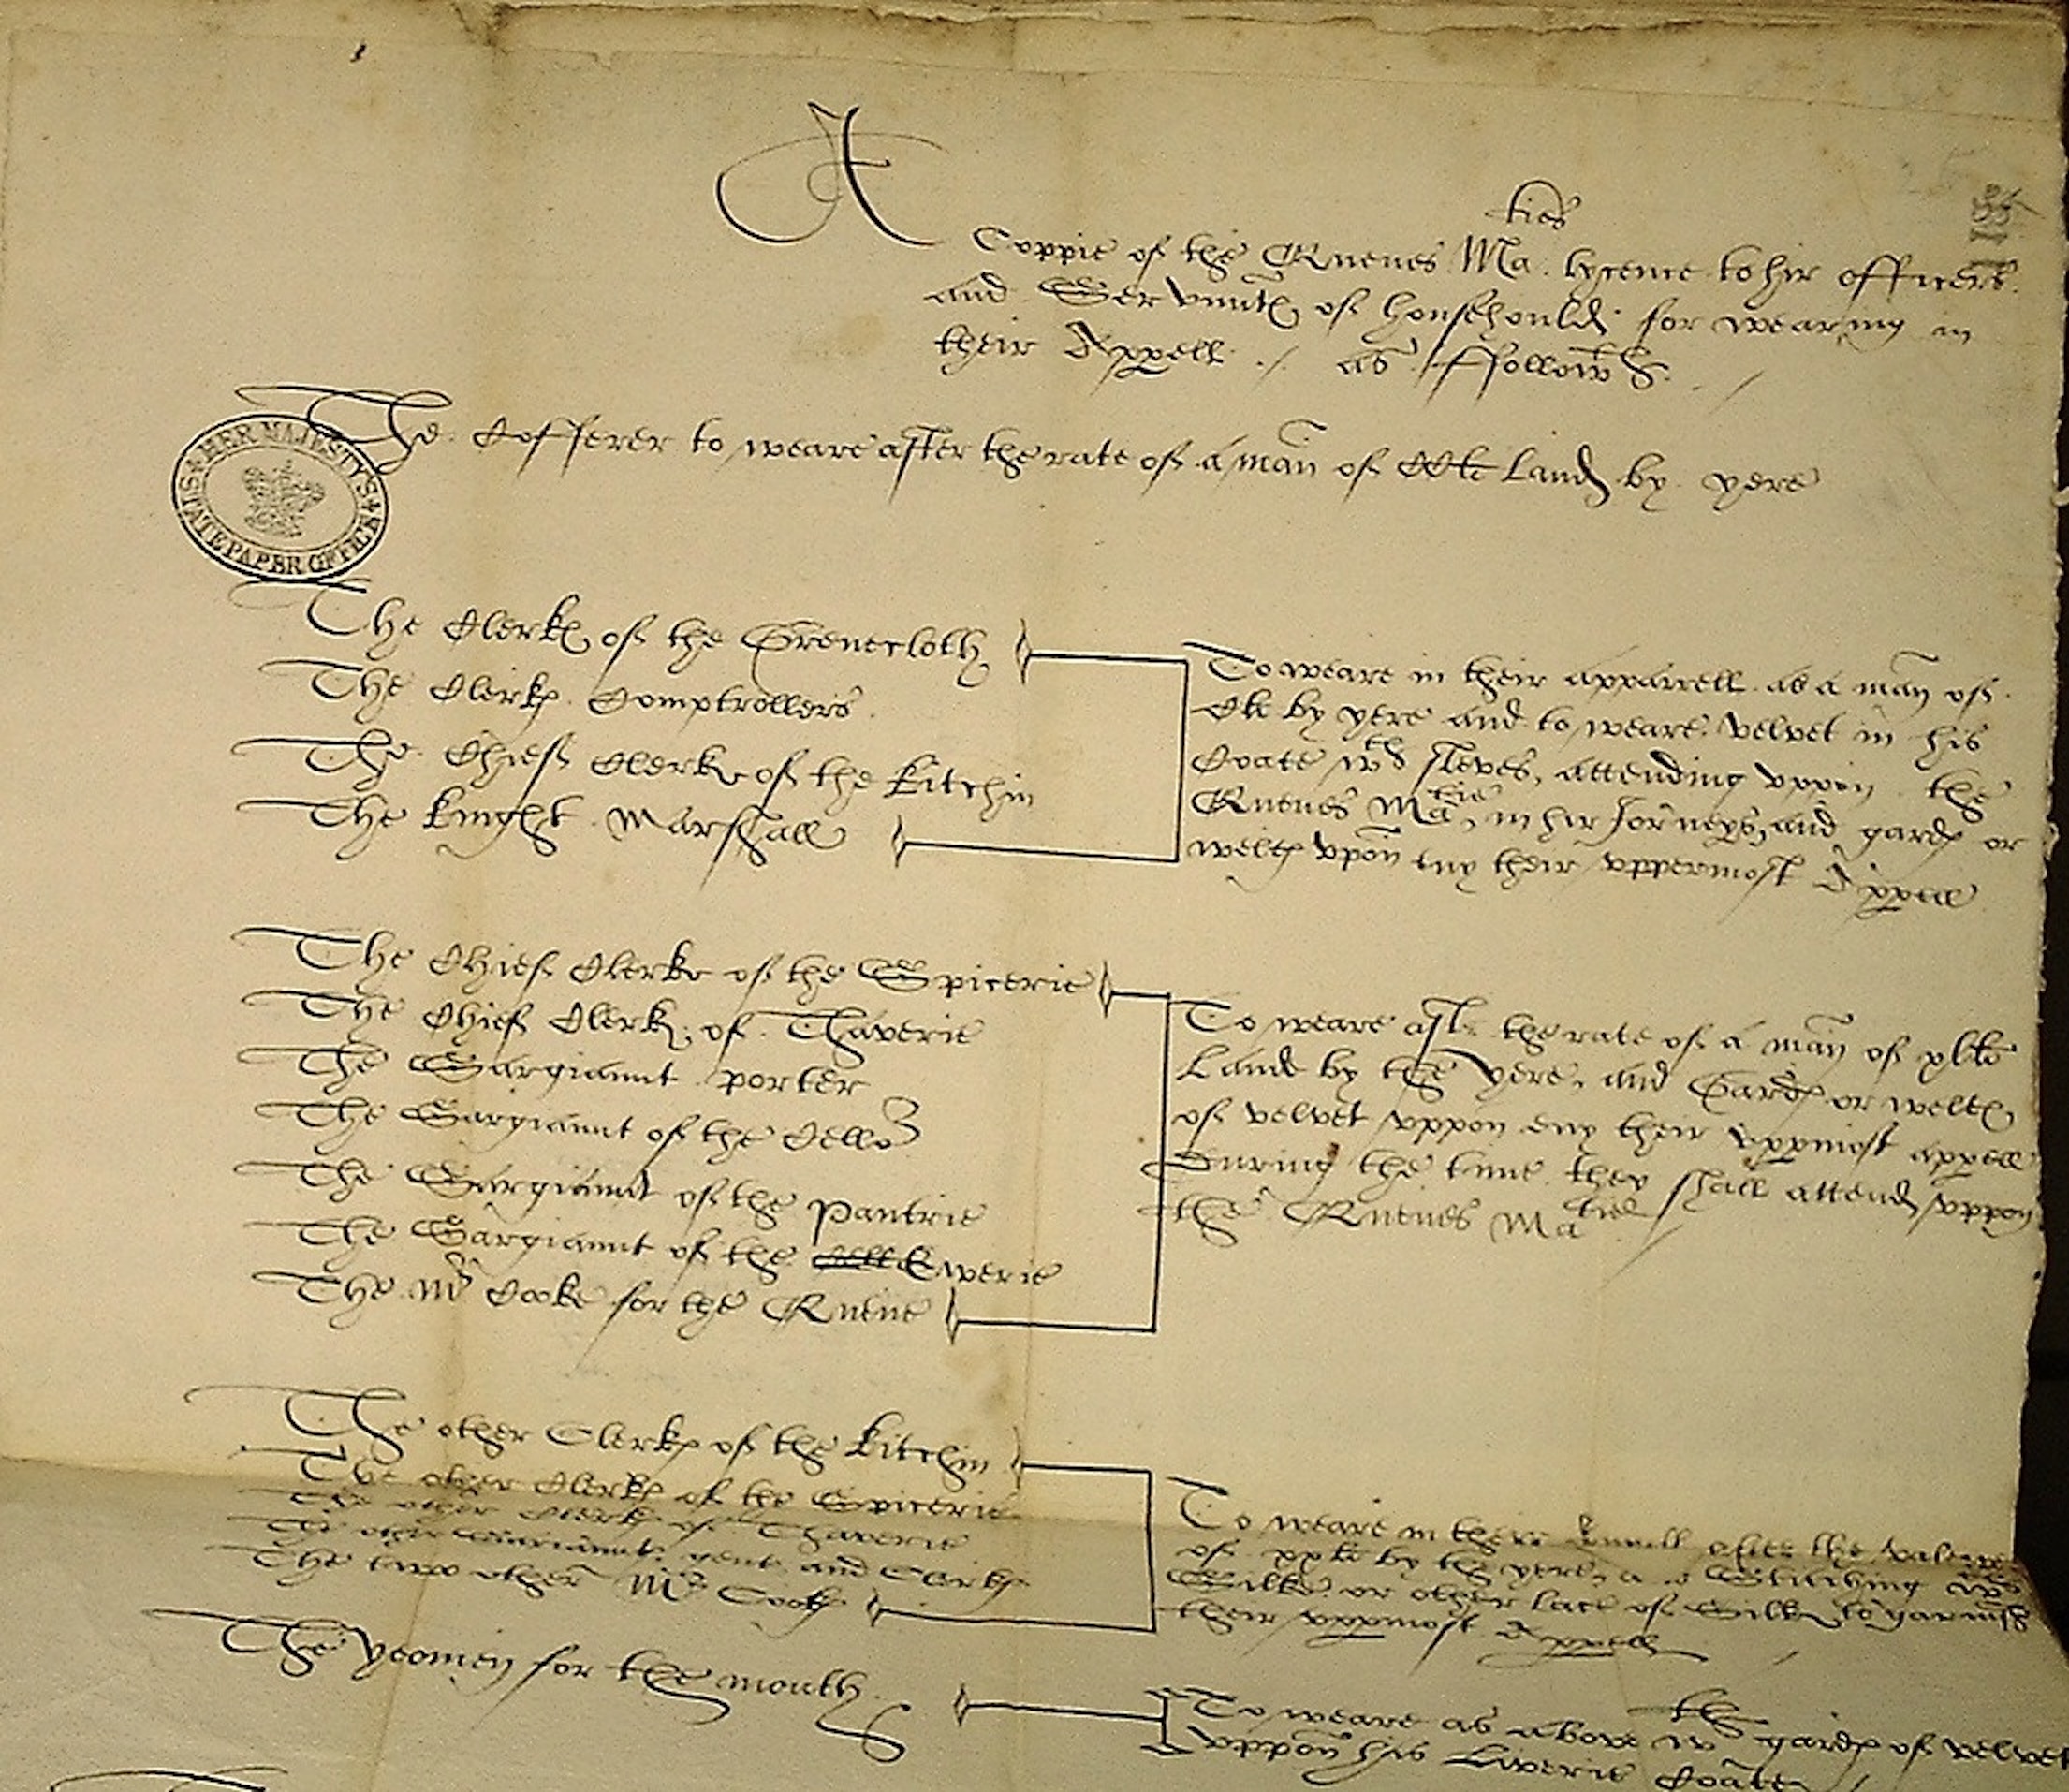 A
Coppie of the Quenes Ma ties lycence to hir officers
and Servuntes of househould for wearing in
their Appell ./. as ffolloweth
The Cofferer to weare after the rate of a man of CCli Land by yere
HER MAJESTY'S STATE PAPER OFFICE
The Clerkes of the Grenecloth
The Clerkes Comptrollers
The Chief Clerke of the Kitchin
The Knight Marshall
To weare in their apparrell as a man of
Cli by yere and to weare velvet in his
Coate wth sleves, attending uppon the
Quenes Matie, in hir Jorneys, and gardes or
weltes upon any their uppermost Appell
The Chief Clerke of the Spicerie
The Chief Clerke of Thaverie
The Sargiaunt porter
The Sargiaunt of the Cellor
The Sargiaunt of the Pantrie
The Sargiaunt of the Ewerie
The Mr Cooke for the Quene
To weare after the rate of a man of xlli
Land by the yere, and Gardes or weltes
of velvet uppon eny their uppmost appell
During the time they shall attend uppon
the Quenes Matie
The other Clerkes of the Kitchin
The other Clerkes of the Spicerie
The other Clerkes of Thaverie
The other Sargiauntes, gent, and Clerkes
The two other Mr Cookes
To weare in there after the valewe
of xxli by the yere, a Stitching wth
Silke or other lace of Silke to garnish
their uppmost Appell
The yeomen for the mouth
To weare as above wth gardes of velvet
uppon his Liverie Coate